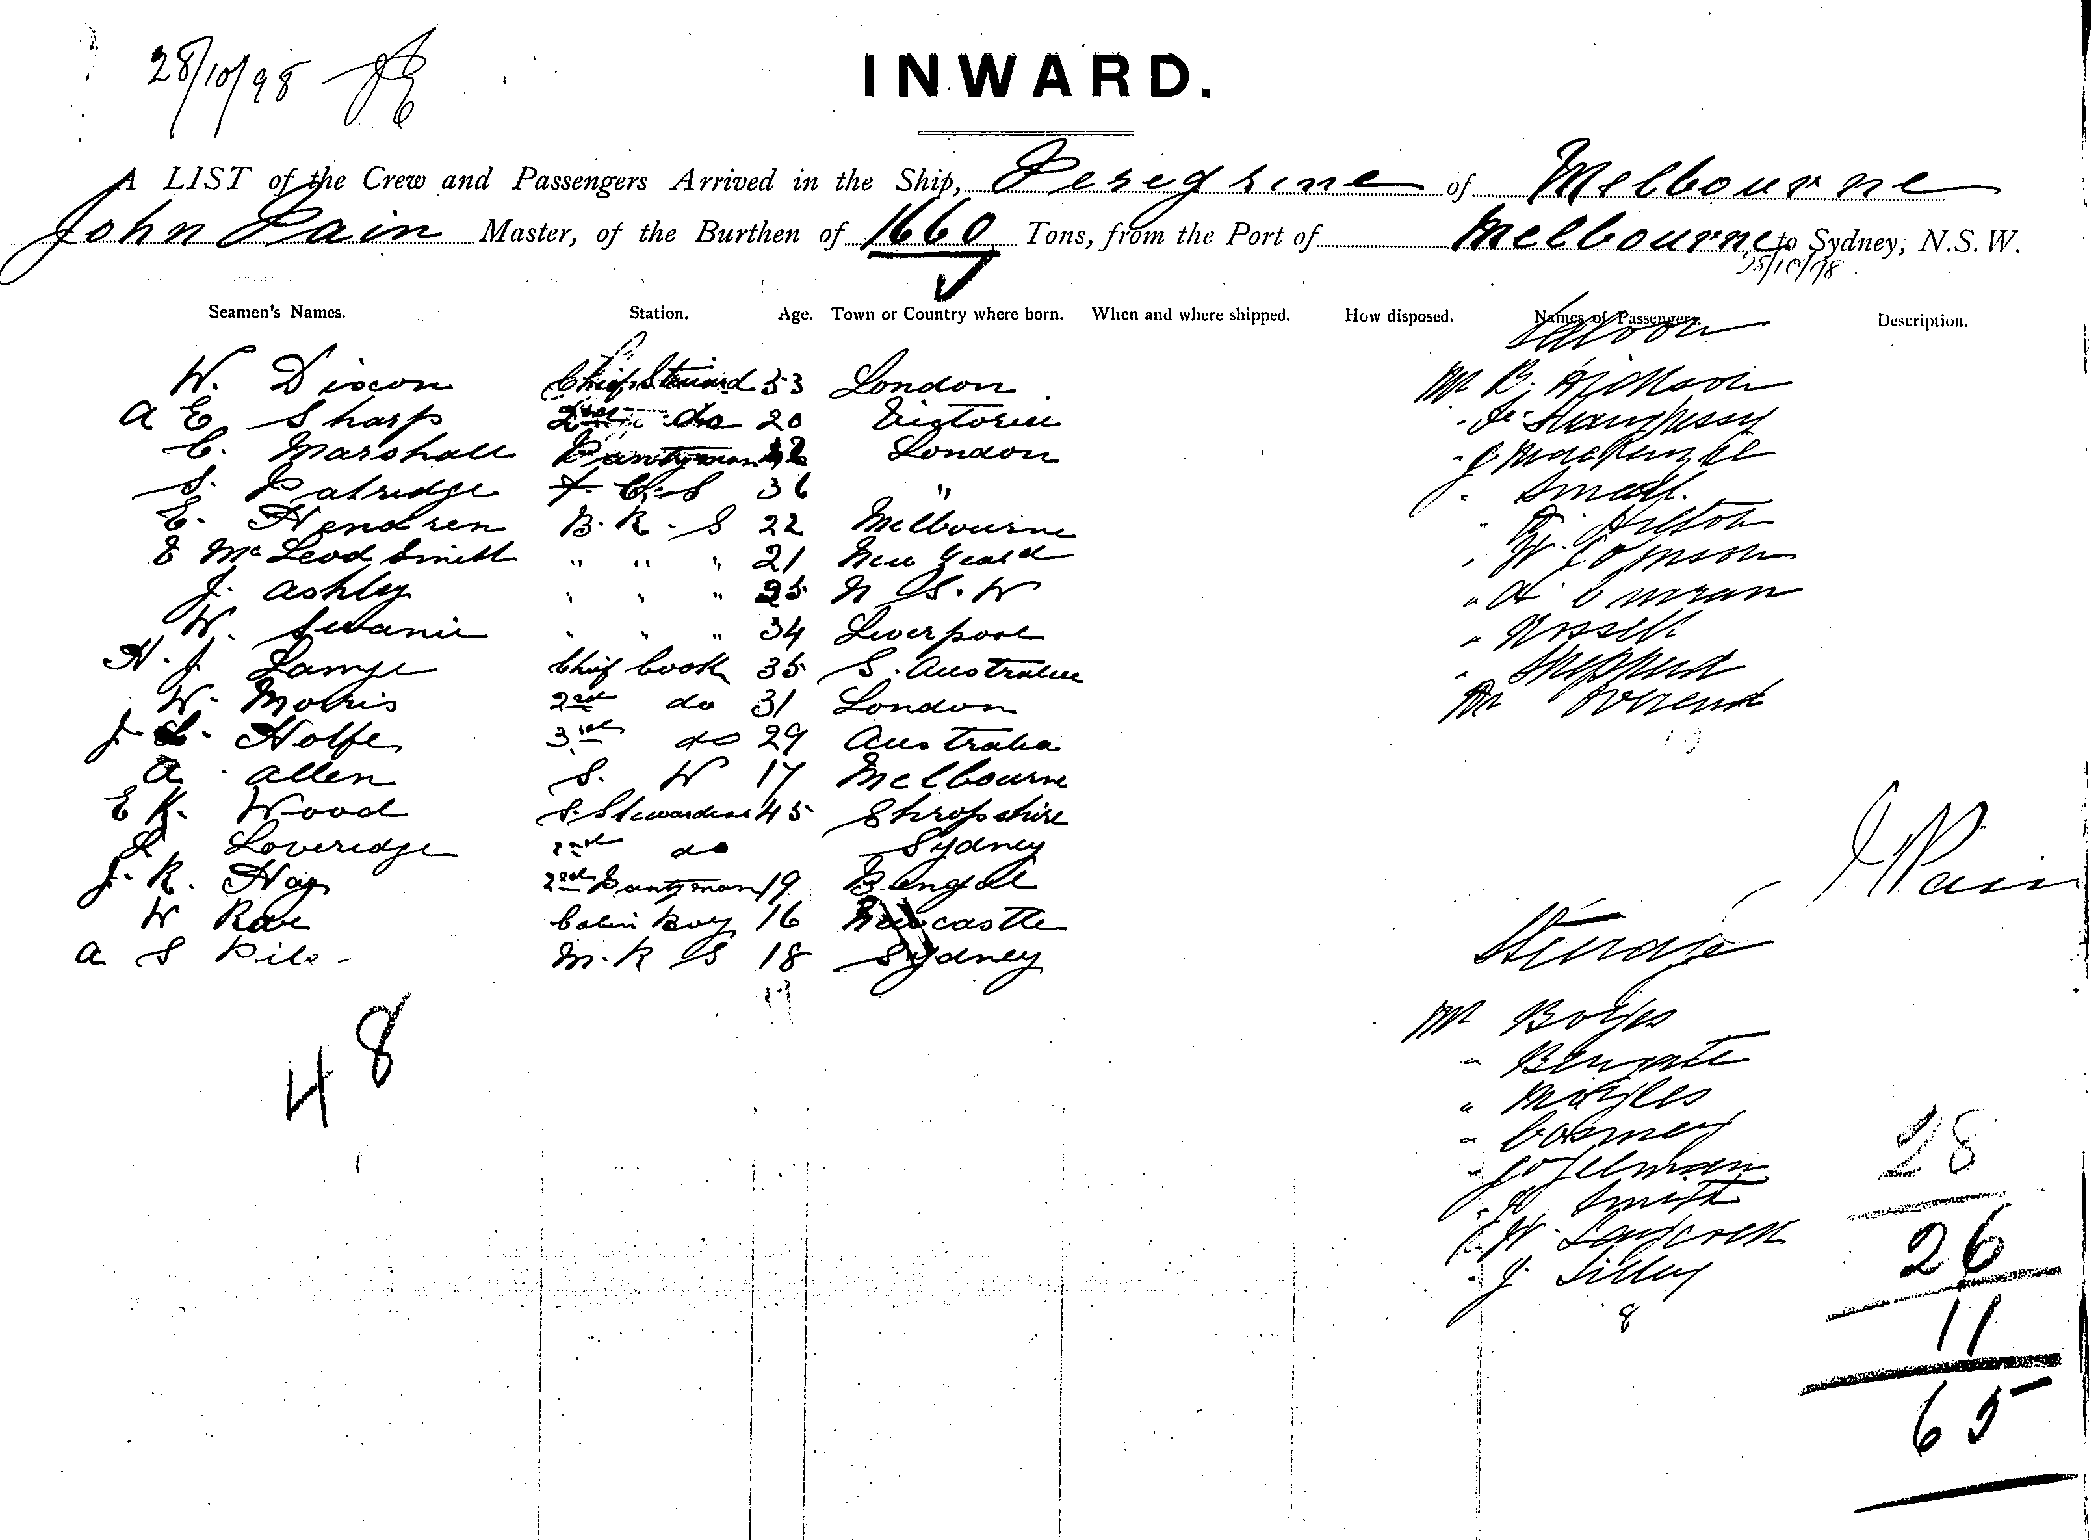 28/10/98
INWARD.
A LIST of the Crew and Passengers Arrived in the Ship, Peregrine of Melbourne
John Pain Master, of the Burthen of 1660 Tons, from the Port of Melbourne to Sydney, N.S.W.
25/10/98
Seamen's Names. Station. Age. Town or Country where born. When and where shipped. How disposed. Names of Passengers. Description.
Saloon
W. Dixon Chief Steward 53 London
A E Sharp 2nd do 20 Victoria
C. Marshall Pantryman London
S. Patridge F. C. S 36 "
E. Hendren B. R. S 22 Melbourne
E Mc Leod Smith " " " 21 New Zeald
J. Ashley " " " 25 N S. W
W. Swanie " " " 34 Liverpool
H. J. Lamge Chief Cook 35 S. Australia
W. Morris 2nd do 31 London
J. Holfe 3rd do 29 Australia
A. Allen S. W 17 Melbourne
E K. Wood S. Stewardess 45 Shropshire
L Loveridge 2nd do Sydney
J. R. Hay 2nd Pantryman 19 Bengal
W Rae Cabin Boy 16 Newcastle
A S Pile M. R S 18 Sydney
48
Mr B.
" J. Shaughnessy
" J MacKenzie
J. Small.
" Hilton
" W.
" A
"
" Sheppard
Mr
J Pain
Steerage
Mr Boyes
" Bengate
"
"
"
" H. Smith
" W. Laycock
" J. Tilley
8
28
26
11
65